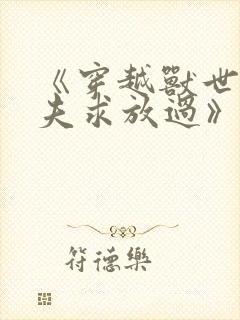 《穿越獸世
夫求放過》
符德樂